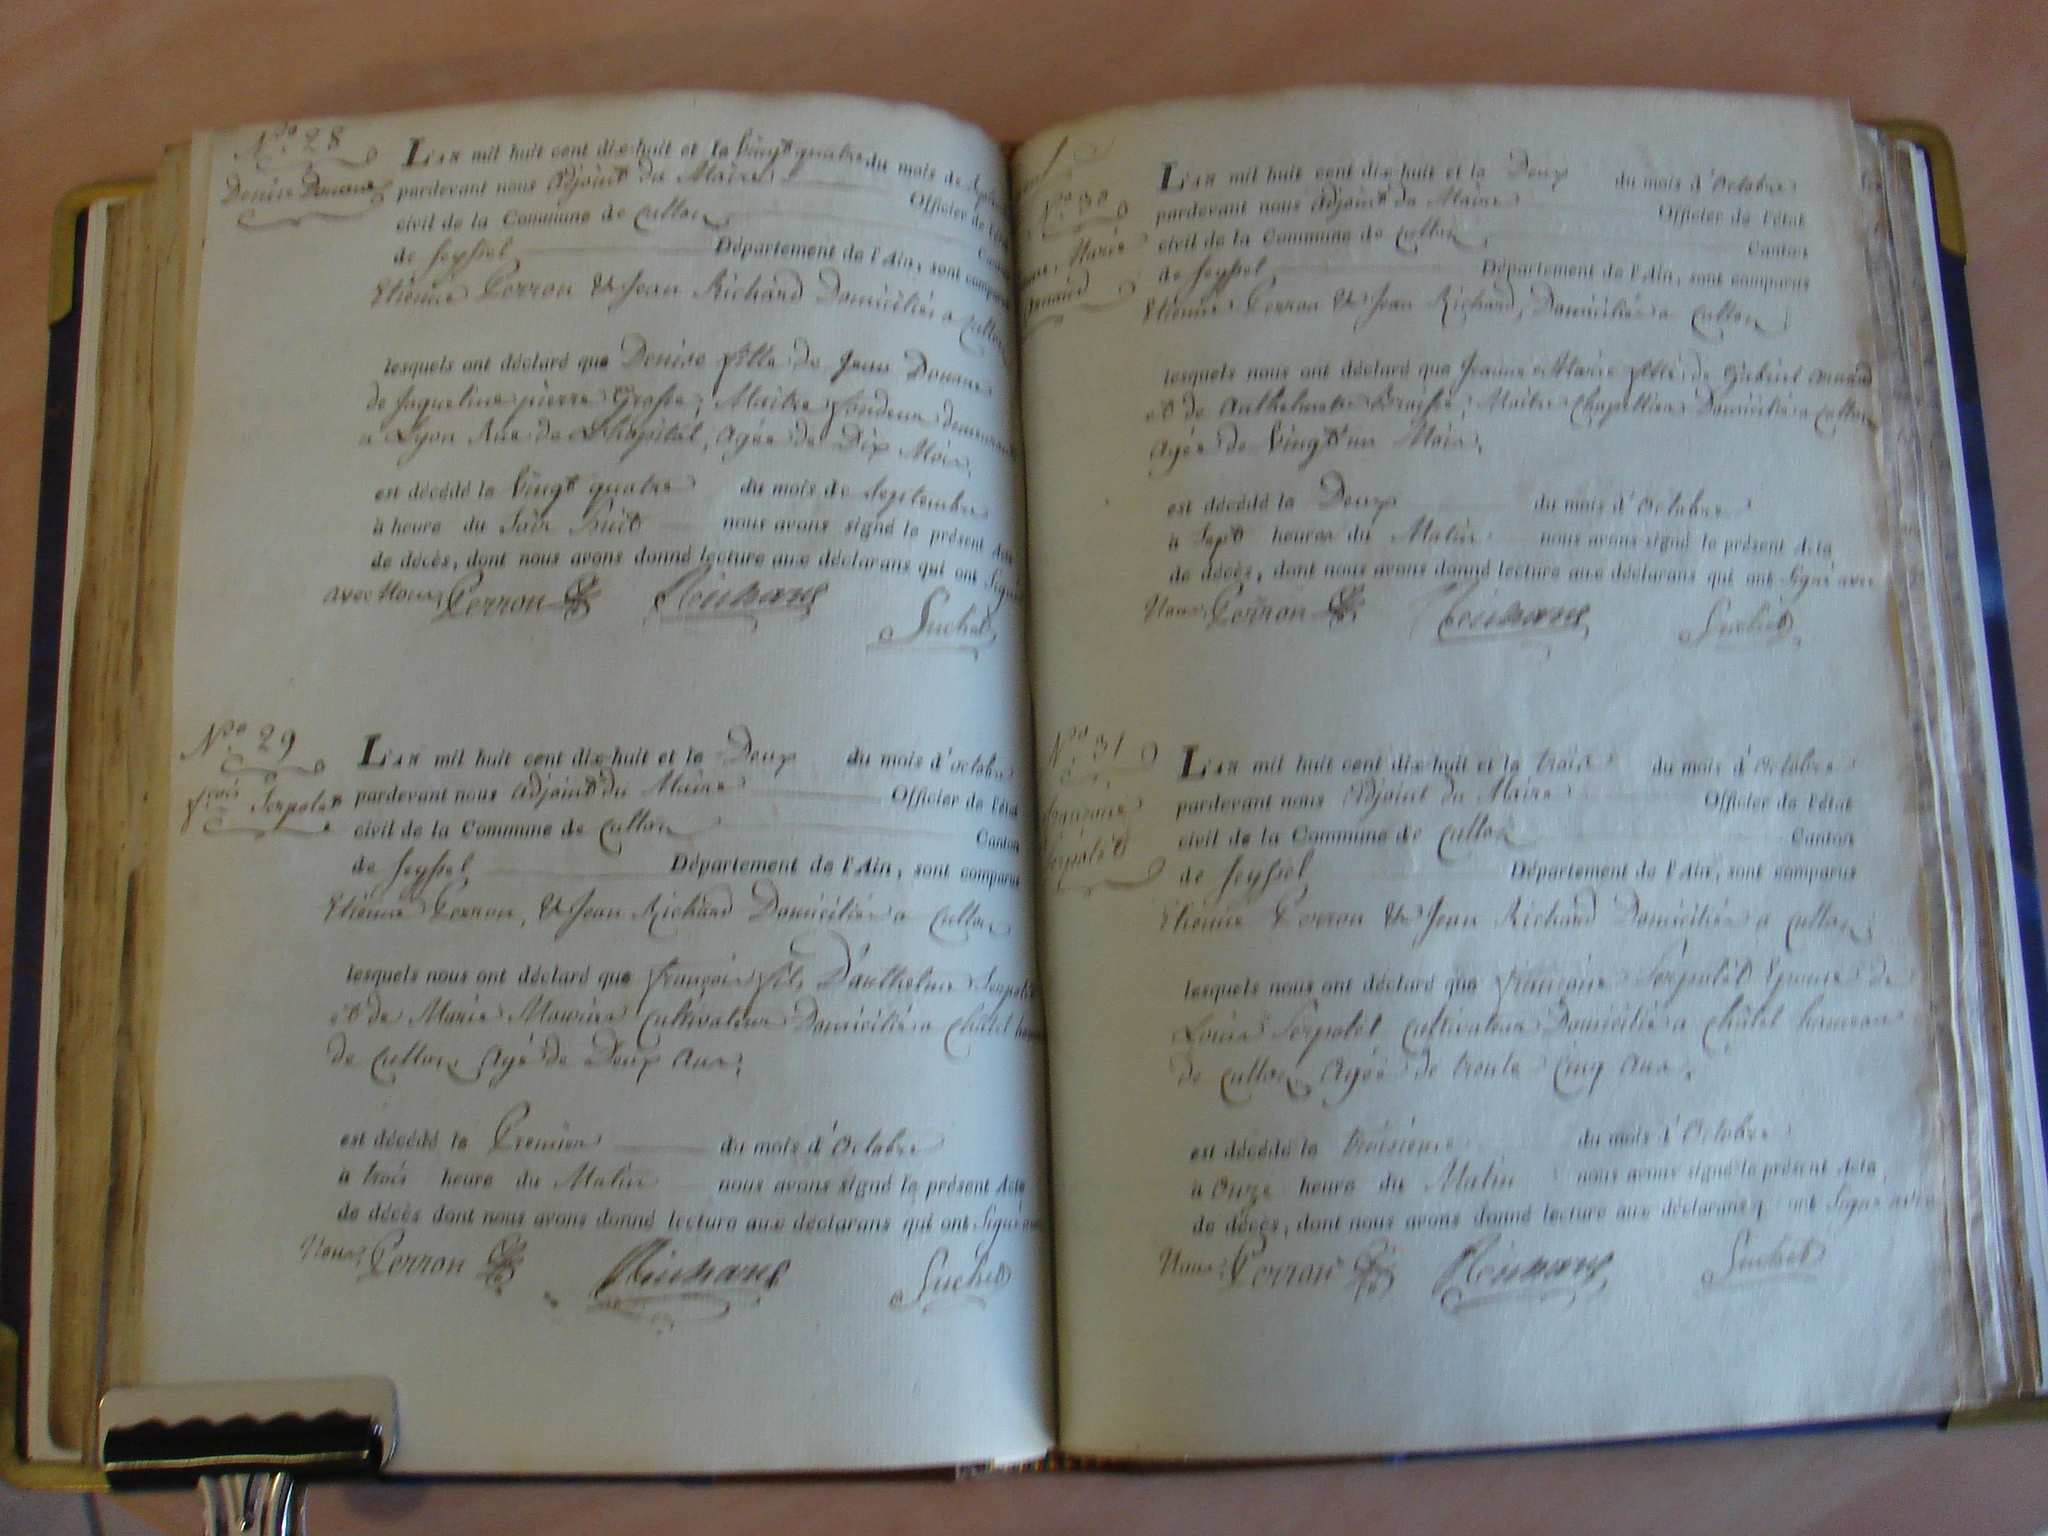 N.º 28
Denise Douane
L'AN mil huit cent dix-huit et le vingt quatre du mois de
pardevant nous Adjoint du Maire Officier de l'état
civil de la Commune de Culloz Canton
de Seyssel Département de l'Ain, sont comparus
Etienne Perron & Jean Richard Domiciliés a Culloz
lesquels ont déclaré que Denise fille de Jean Douane
de Jaqueline pierre Grosse, Maitre fondeur demeurant
a Lyon Rue de L'hopital, agée de Dix Mois,
est décédé le vingt quatre du mois de septembre
à heure du Soir huit nous avons signé le présent Acte
de décès, dont nous avons donné lecture aux déclarans qui ont Signé
avec Nous, Perron Richard
Suchet
N.º 29
f.çois Serpolet
L'AN mil huit cent dix-huit et le Deux du mois d'octobre
pardevant nous Adjoint du Maire Officier de l'état
civil de la Commune de Culloz Canton
de Seyssel Département de l'Ain, sont comparus
Etienne Perron, & Jean Richard Domiciliés a Culloz
lesquels nous ont déclaré que françois fils D'anthelme Serpolet
et de Marie cultivateur Domicilié a Châtel
de Culloz Agé de Deux Ans;
est décédé le Premier du mois d'Octobre
à trois heure du Matin nous avons signé le présent Acte
de décès dont nous avons donné lecture aux déclarans qui ont Signé avec
Nous, Perron Richard Suchet
N.º 30
Marie
L'AN mil huit cent dix-huit et le Deux du mois d'Octobre
pardevant nous Adjoint du Maire Officier de l'état
civil de la Commune de Culloz Canton
de Seyssel Département de l'Ain, sont comparus
Etienne Perron & Jean Richard, Domiciliés a Culloz
lesquels nous ont déclaré que Jeanne Marie fille de Gabriel
et de Anthelmette Maitre Chapellier Domicilié a Culloz
Agée de vingt un Mois,
est décédé le Deux du mois d'Octobre
à Sept heures du Matin nous avons signé le présent Acte
de décès, dont nous avons donné lecture aux déclarans qui ont Signé avec
Nous, Perron Richard Suchet
N.º 31
françoise
Serpolet
L'AN mil huit cent dix-huit et le trois du mois d'Octobre
pardevant nous Adjoint du Maire Officier de l'état
civil de la Commune de Culloz Canton
de Seyssel Département de l'Ain, sont comparus
Etienne Perron & Jean Richard Domiciliés a Culloz
lesquels nous ont déclaré que françoise Serpolet Epouse de
Louis Serpolet cultivateur Domicilié a Châtel
de Culloz Agée de trente Cinq Ans,
est décédé le troisième du mois d'Octobre
à Onze heure du Matin nous avons signé le présent Acte,
de décès, dont nous avons donné lecture aux déclarans q ont Signé avec
Nous, Perron Richard Suchet